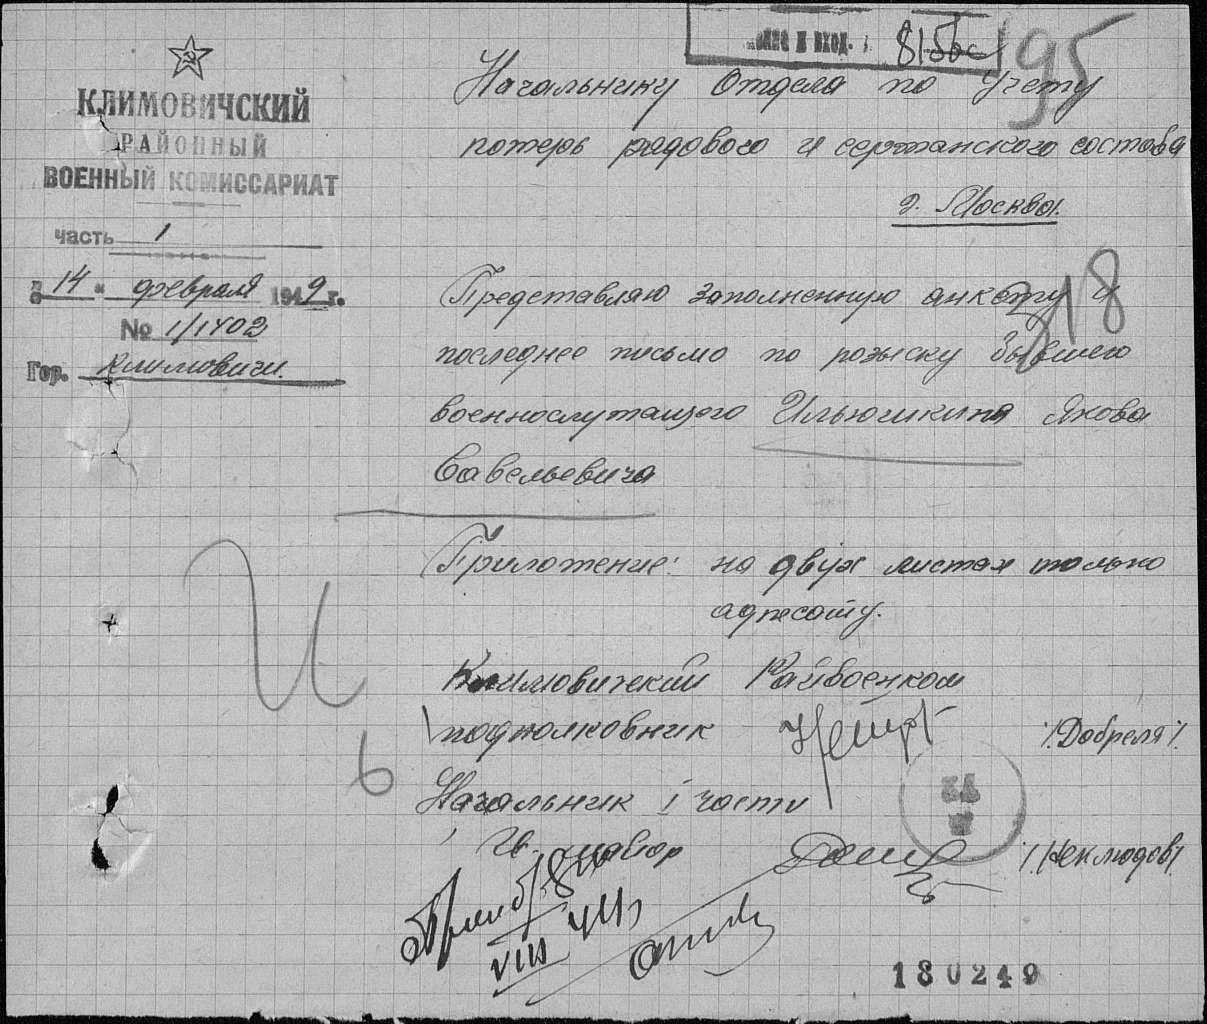 КЛИМОВИЧСКИЙ
РАЙОННЫЙ
ВОЕННЫЙ КОМИССАРИАТ
часть 1
„14“ февраля 1949 г.
№ 1/1402
Гор. Климовичи.
вход. 8156с
195
Начальнику Отдела по учету
потерь рядового и сержанского состава
г. Москва.
318
Представляю заполненную анкету и
последнее письмо по розыску бывшего
военнослужащего Ильюшкина Якова
Савельевича
Приложение: на двух листах только
адресату.
И
Климовичский Райвоенком
подполковник /Добреля/.
6
Начальник 1 части
Гв. майор /Неклюдов/
VIII
180249